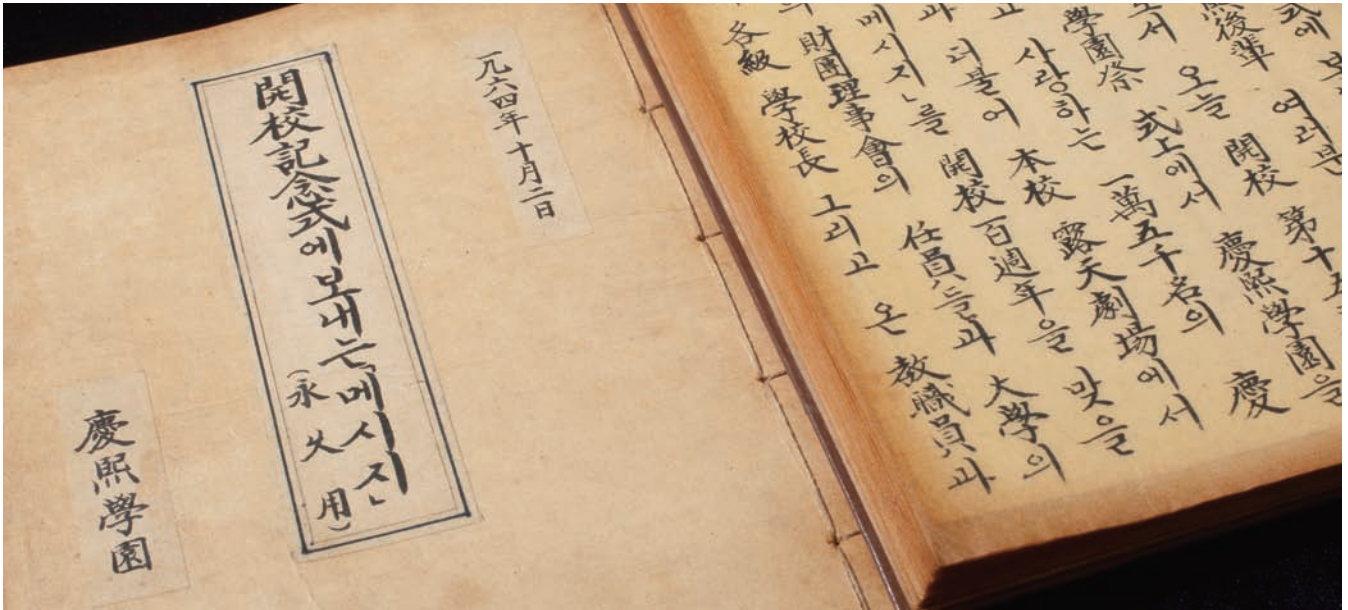 一九六四年 十月二日
開校記念式에보내는「메시지」
(永久用)
慶熙學園
式에 보
熙後輩 여러분
서 오늘 開校 第十五
學園祭 式上에서 慶熙學園을
고 사랑하는 一萬五千名의 慶
과 더불어 本校 露天劇場에서
메시지」를 開校百週年을 맞을
의 財團理事會의 任員들과 大學의
各級 學校長 그리고 온 教職員과